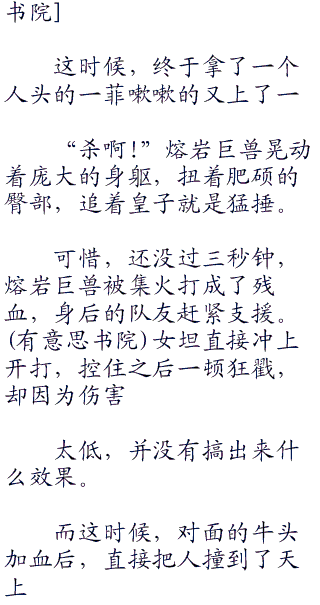 书院]
这时候，终于拿了一个
人头的一菲嗽嗽的又上了一
“杀啊!”熔岩巨兽晃动
着庞大的身躯，扭着肥硕的
臀部，追着皇子就是猛捶。
可惜，还没过三秒钟，
熔岩巨兽被集火打成了残
血，身后的队友赶紧支援。
(有意思书院)女坦直接冲上
开打，控住之后一顿狂戳，
却因为伤害
太低，并没有搞出来什
么效果。
而这时候，对面的牛头
加血后，直接把人撞到了天
上